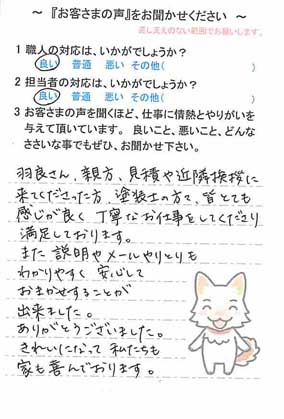 ~ 『お客さまの声』をお聞かせください ~
差し支えのない範囲でお願いします。
1 職人の対応は、いかがでしょうか?
良い 普通 悪い その他( )
2 担当者の対応は、いかがでしょうか?
良い 普通 悪い その他( )
3 お客さまの声を聞くほど、仕事に情熱とやりがいを
与えて頂いています。 良いこと、悪いこと、どんな
ささいな事でもぜひ、お聞かせ下さい。
羽良さん、親方、見積や近隣挨拶に
来てくださった方、塗装士の方で、皆とても
感じが良く 丁寧なお仕事をしてくださり
満足しております。
また 説明やメールやりとりも
わかりやすく 安心して
おまかせすることが
出来ました。
ありがとうございました。
きれいになって 私たちも
家も喜んでおります。